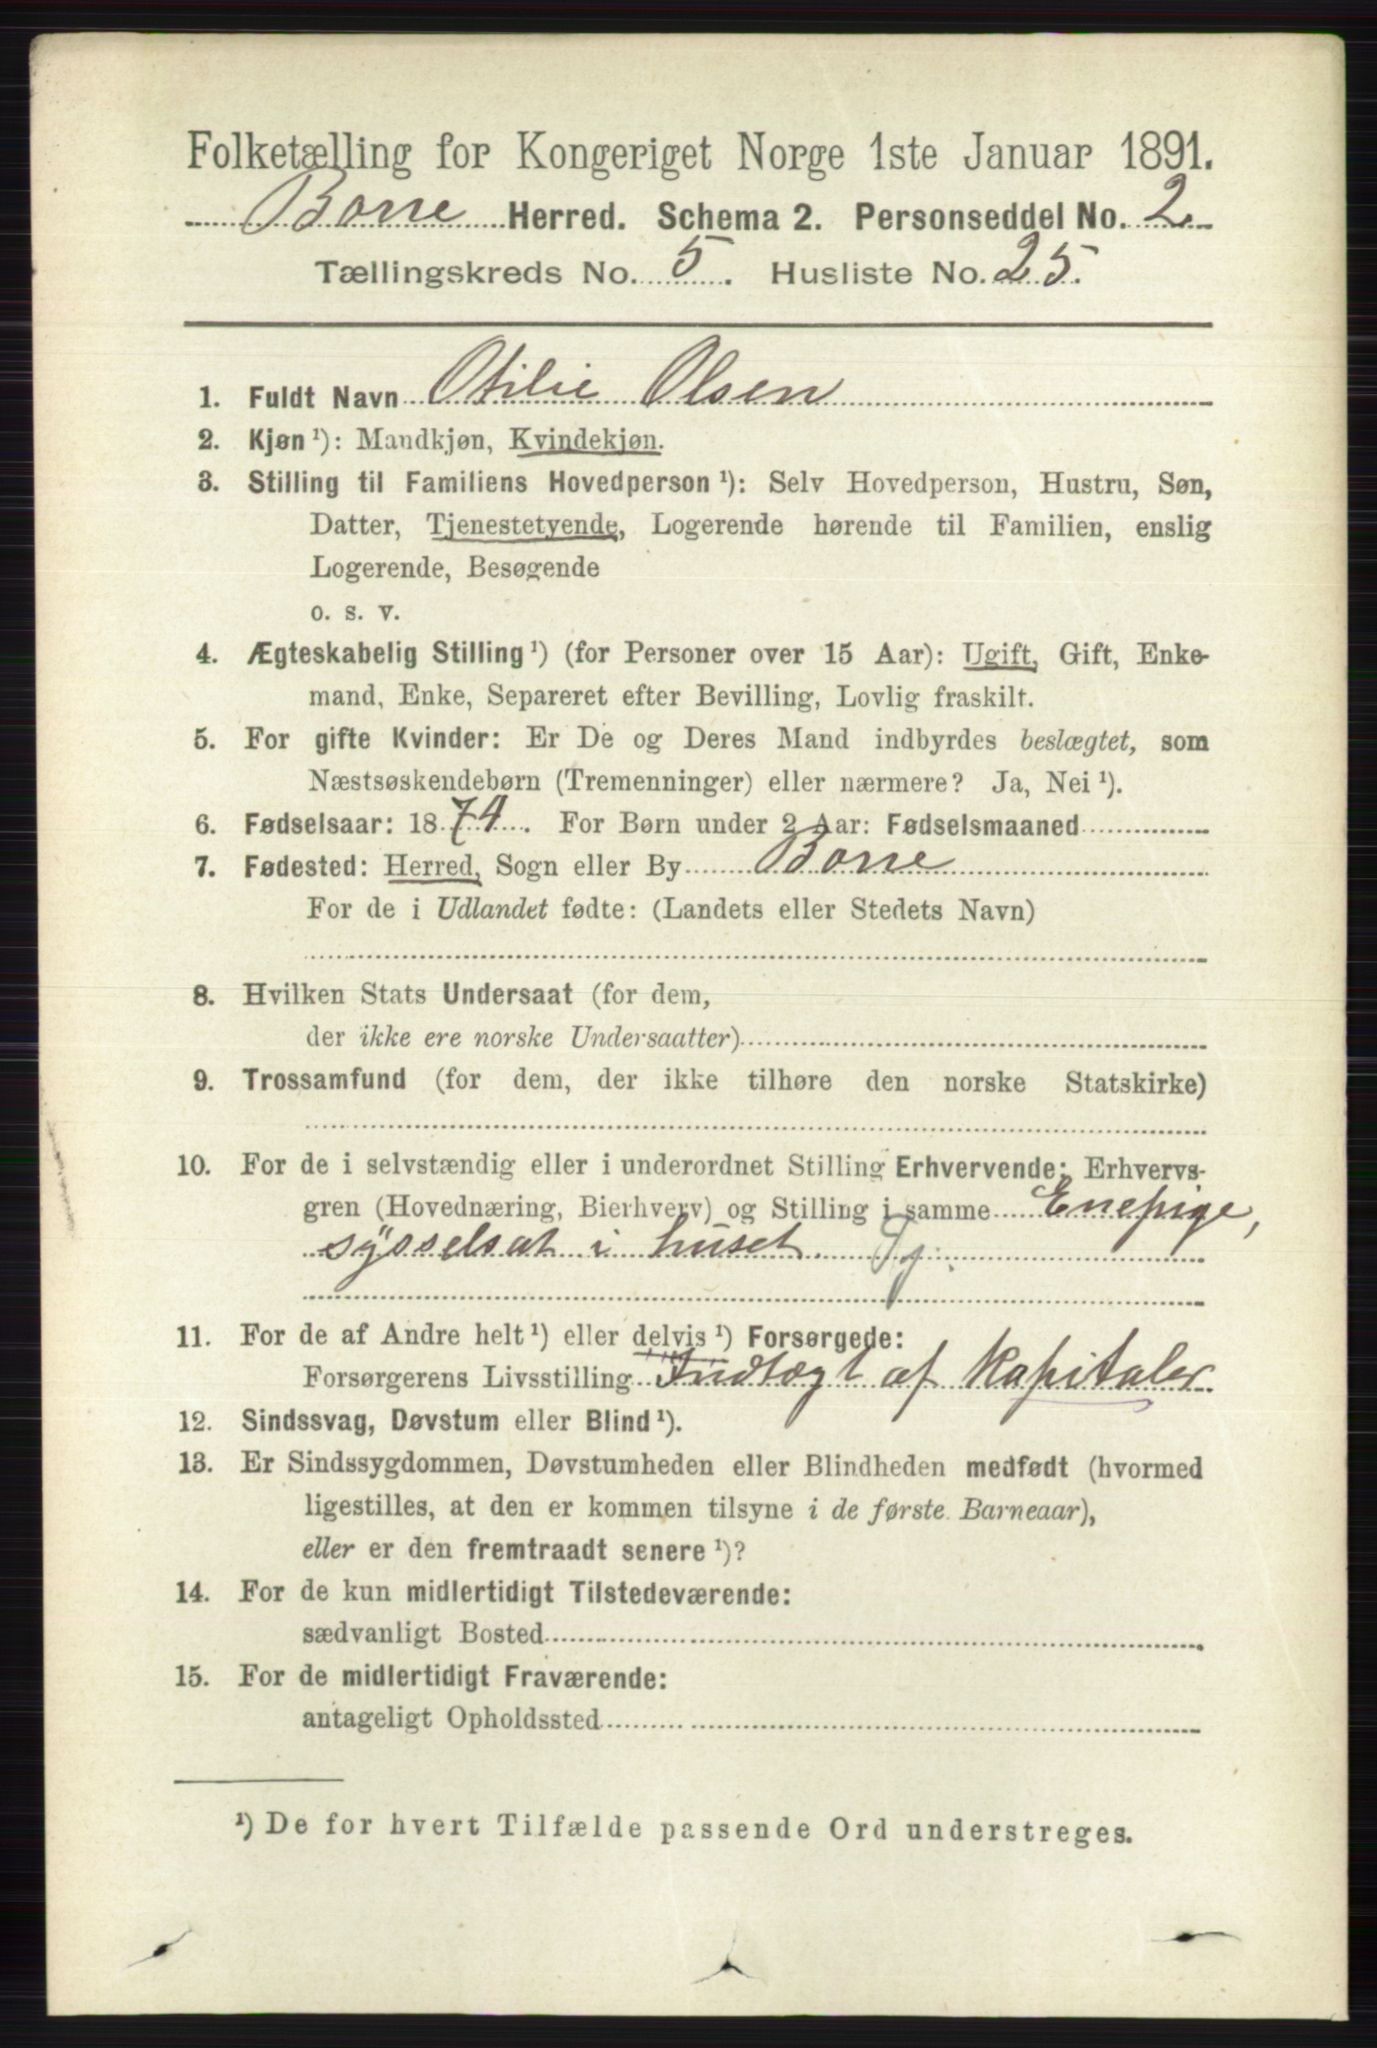 Folketælling for Kongeriget Norge 1ste Januar 1891.
Borre Herred. Schema 2. Personseddel No. 2
Tællingskreds No. 5. Husliste No. 25.
1. Fuldt Navn Otilie Olsen
2. Kjøn ¹): Mandkjøn, Kvindekjøn.
3. Stilling til Familiens Hovedperson ¹): Selv Hovedperson, Hustru, Søn,
Datter, Tjenestetyende, Logerende hørende til Familien, enslig
Logerende, Besøgende
o. s. v.
4. Ægteskabelig Stilling ¹) (for Personer over 15 Aar): Ugift, Gift, Enke-
mand, Enke, Separeret efter Bevilling, Lovlig fraskilt.
5. For gifte Kvinder: Er De og Deres Mand indbyrdes beslægtet, som
Næstsøskendebørn (Tremenninger) eller nærmere? Ja, Nei ¹).
6. Fødselsaar: 1874. For Børn under 2 Aar: Fødselsmaaned
7. Fødested: Herred, Sogn eller By Borre
For de i Udlandet fødte: (Landets eller Stedets Navn)
8. Hvilken Stats Undersaat (for dem,
der ikke ere norske Undersaatter)
9. Trossamfund (for dem, der ikke tilhøre den norske Statskirke)
10. For de i selvstændig eller i underordnet Stilling Erhvervende: Erhvervs-
gren (Hovednæring, Bierhverv) og Stilling i samme Enepige,
sysselsat i huset. Tj.
11. For de af Andre helt ¹) eller delvis ¹) Forsørgede:
Forsørgerens Livsstilling Indtægt af Kapitaler
12. Sindssvag, Døvstum eller Blind ¹).
13. Er Sindssygdommen, Døvstumheden eller Blindheden medfødt (hvormed
ligestilles, at den er kommen tilsyne i de første Barneaar),
eller er den fremtraadt senere ¹)?
14. For de kun midlertidigt Tilstedeværende:
sædvanligt Bosted
15. For de midlertidigt Fraværende:
antageligt Opholdssted
¹) De for hvert Tilfælde passende Ord understreges.